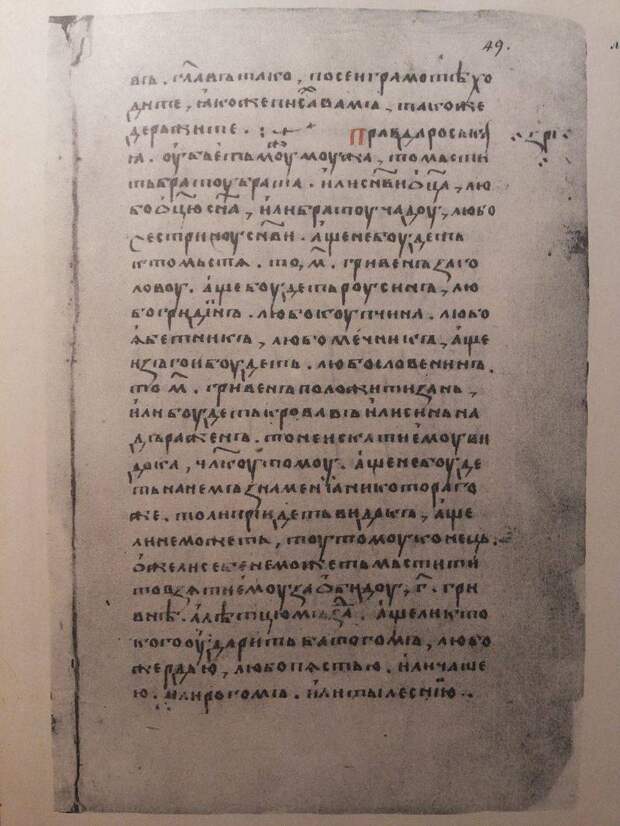 49.
въ. гл҃авъ тако, посеи грамотѣ хо
дите, ꙗкоже писах вамъ, такоже
держите. Правда роськꙗ
ꙗ. оубьеть моужь моужа, то мьстит
ть братоу брата. или сн҃ви ѡц҃а, лю
бо ѡц҃ю сн҃а, или братоу чадоу, любо
сестриноу сн҃ви. аще не боудеть
кто мьстѧ. то, м҃. гривенъ за го
ловоу. аще боудеть роусинъ, лю
бо гридинъ. любо коупчина. любо
ꙗбетникъ, любо мечникъ, аще
изъгои боудеть. любо словенинъ.
то м҃. гривенъ положити за нь,
или боудеть кровавъ или синь на
дъраженъ. то не искати емоу ви
дока, чл҃коу томоу. аще не боуде
ть на нем знамениꙗ никотораго
же. толи приидеть видокъ, аще
ли не можеть, тоу томоу конець.
ѡже ли себе не можеть мьстити
то взѧти емоу за ѡбидоу, г҃. грив
внѣ. а лѣтцю мъзда. аще ли кто
кого оударить батогомъ, любо
жердью, любо пѧстью. или чаше
ю. или рогомъ. или тылеснию.